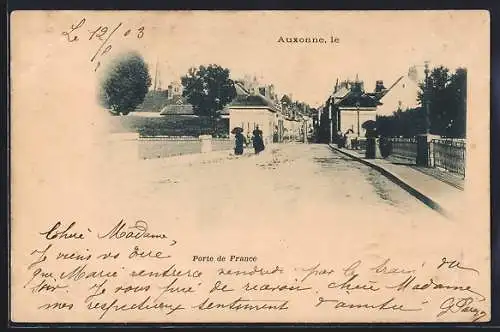 Le 12/6 03
Auxonne, le
Porte de France
Chère Madame,
Je viens vs dire
que Marie rentrera vendredi par le train du
soir, Je vous prie de recevoir, chère Madame,
mes respectueux sentiment d'amitié